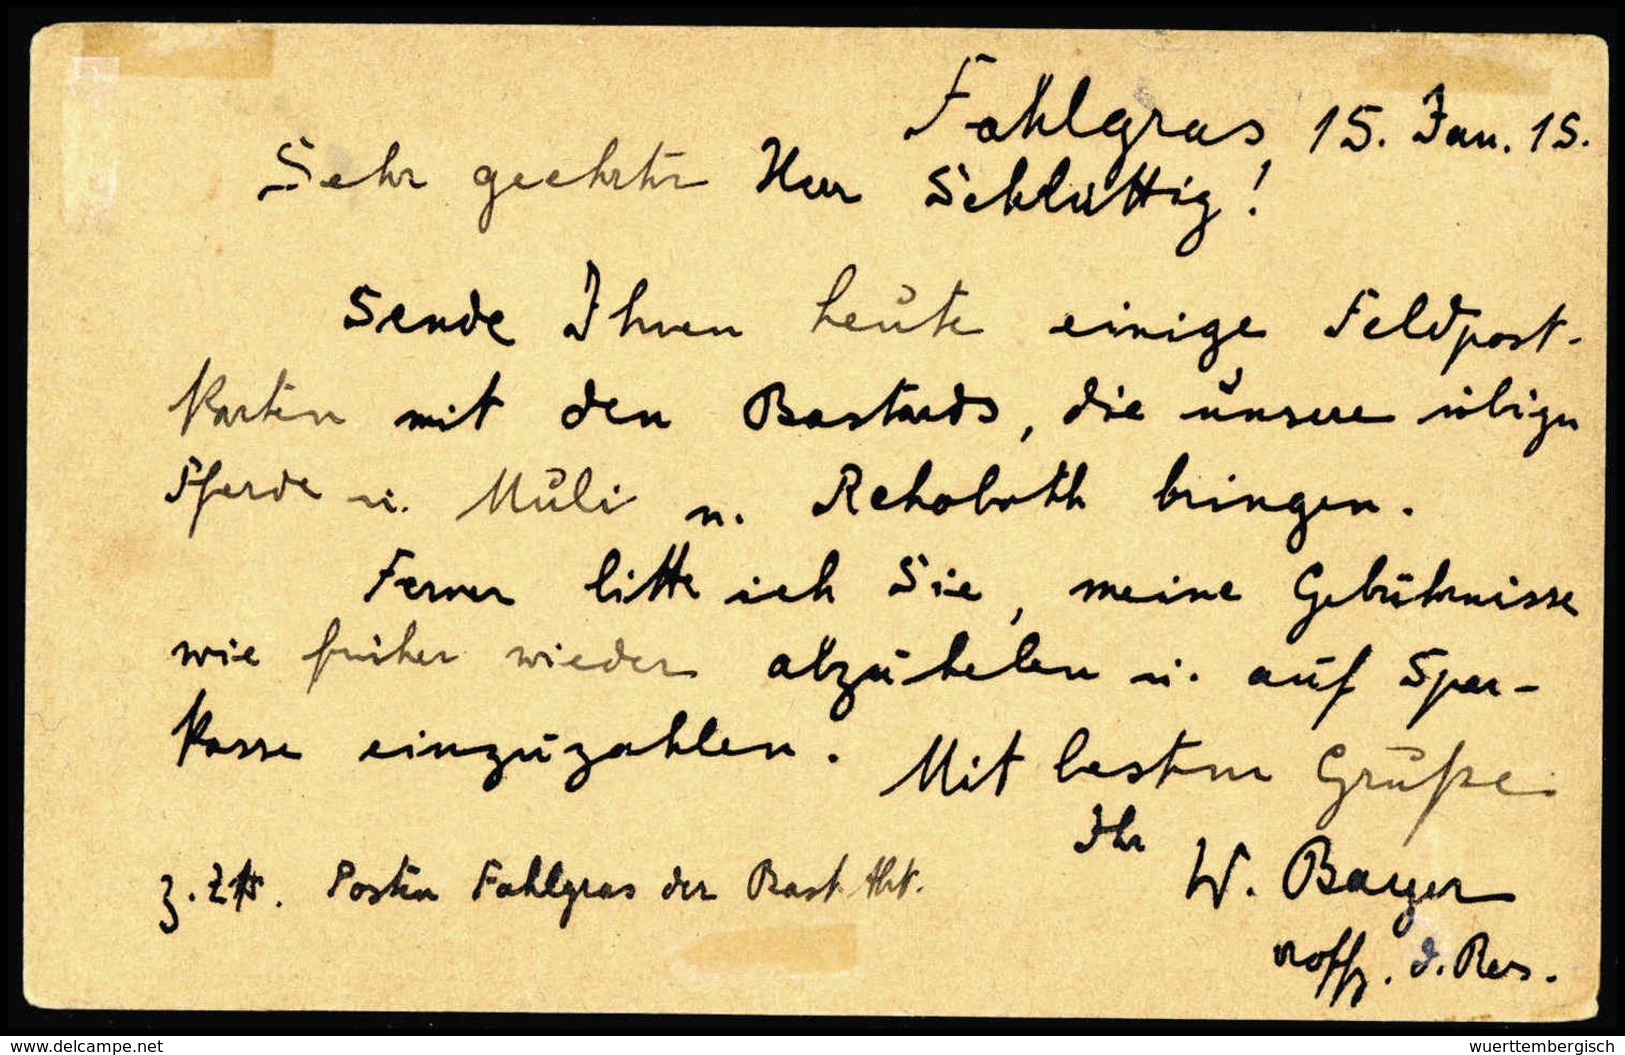 Fahlgras 15. Jan. 15.
Sehr geehrter Herr Schlüttig!
Sende Ihnen heute einige Feldpost-
karten mit den Bastards, die unsere übigen
Pferde u. Muli n. Rehoboth bringen.
Ferner bitte ich Sie, meine Gebührnisse
wie früher wieder abzuheben u. auf Spar-
kasse einzuzahlen. Mit bestem Gruße
Ihr
W. Bayer
z. Zt. Posten Fahlgras der Bast. Abt.
Uoffz. d. Res.
www.delcampe.net
wuerttembergisch